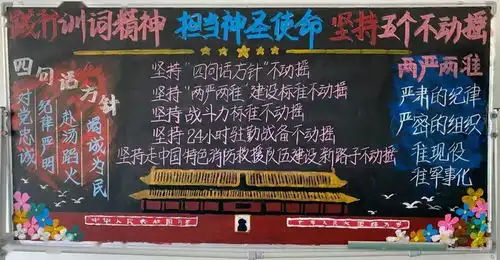 践行训词精神 担当神圣使命 坚持五个不动摇
四句话方针
对党忠诚
纪律严明
赴汤蹈火
竭诚为民
坚持"四句话方针"不动摇
坚持"两严两准"建设标准不动摇
坚持战斗力标准不动摇
坚持24小时驻勤战备不动摇
坚持走中国特色消防救援队伍建设新路子不动摇
两严两准
严肃的纪律
严密的组织
准现役
准军事化
中华人民共和国万岁